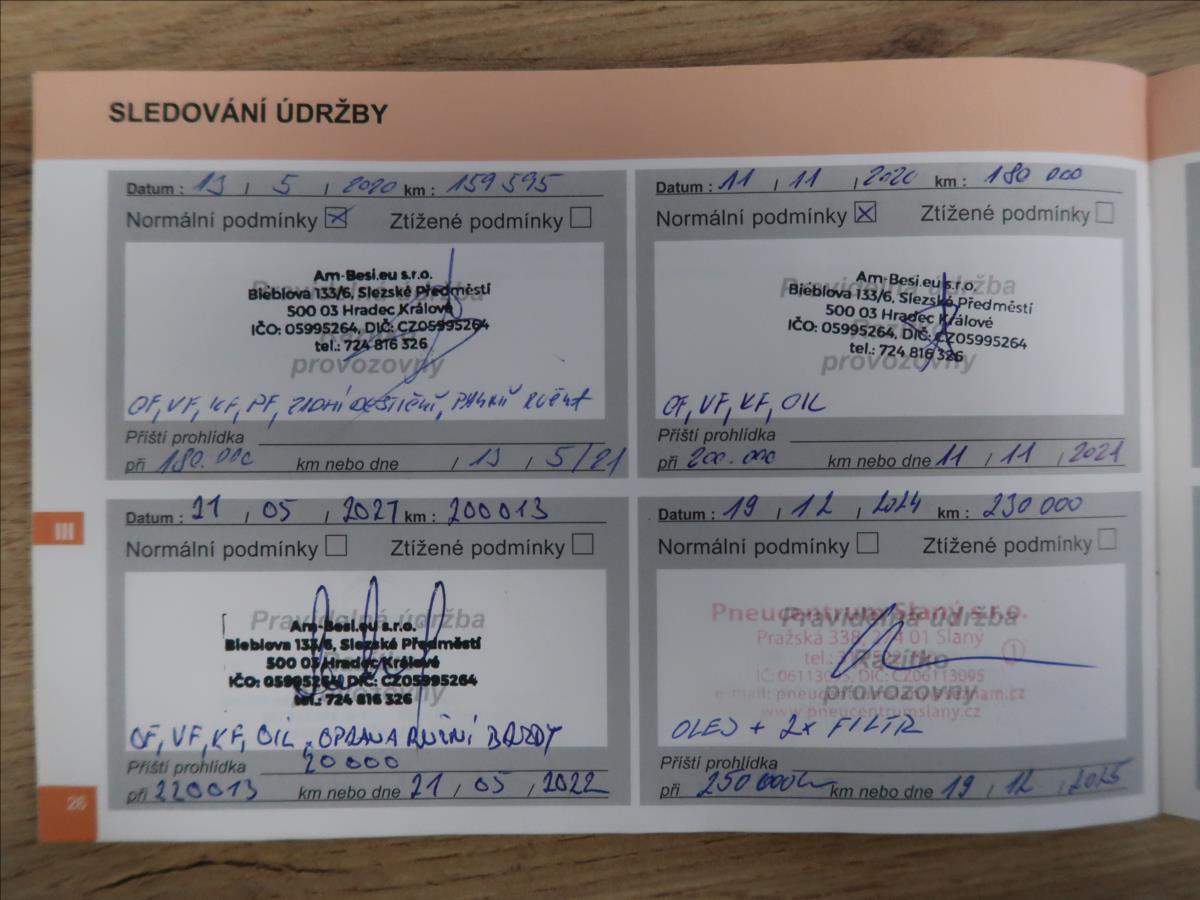 SLEDOVÁNÍ ÚDRŽBY
Datum : 13 / 5 / 2020 km : 159 595
Normální podmínky Ztížené podmínky
Pravidelná údržba
Razítko
provozovny
Am-Besi.eu s.r.o.
Bieblova 133/6, Slezské Předměstí
500 03 Hradec Králové
IČO: 05995264, DIČ: CZ05995264
tel.: 724 816 326
OF, VF, KF, PF,
Příští prohlídka
při 180.000 km nebo dne / 13 / 5/21
Datum : 11 / 11 / 2020 km : 180 000
Normální podmínky Ztížené podmínky
Pravidelná údržba
Razítko
provozovny
Am-Besi.eu s.r.o.
Bieblova 133/6, Slezské Předměstí
500 03 Hradec Králové
IČO: 05995264, DIČ: CZ05995264
tel.: 724 816 326
OF, VF, KF, OIL
Příští prohlídka
při 200.000 km nebo dne 11 / 11 / 2021
III
Datum : 21 / 05 / 2021 km : 200013
Normální podmínky Ztížené podmínky
Pravidelná údržba
Razítko
provozovny
Am-Besi.eu s.r.o.
Bieblova 133/6, Slezské Předměstí
500 03 Hradec Králové
IČO: 05995264, DIČ: CZ05995264
tel.: 724 816 326
OF, VF, KF, OIL, OPRAVA RUČNÍ BRZDY
Příští prohlídka 20000
při 220013 km nebo dne 21 / 05 / 2022
Datum : 19 / 12 / 2024 km : 230 000
Normální podmínky Ztížené podmínky
Pravidelná údržba
Razítko
provozovny
Pneucentrum Slaný s.r.o.
Pražská 338, 274 01 Slaný
tel.:
IČ: 06113095, DIČ: CZ06113095
www.pneucentrumslany.cz
OLEJ + 2x FILTR
Příští prohlídka
při 250 000km km nebo dne 19 / 12 / 2025
26